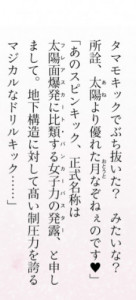 タマモキックでぶち抜いた？　みたいな？
所詮、太陽より優れた月なぞねぇのです♥
「あのスピンキック、正式名称は
太陽面爆発に比類する女子力の発露、と申し
まして。地下構造に対して高い制圧力を誇る
マジカルなドリルキック……」